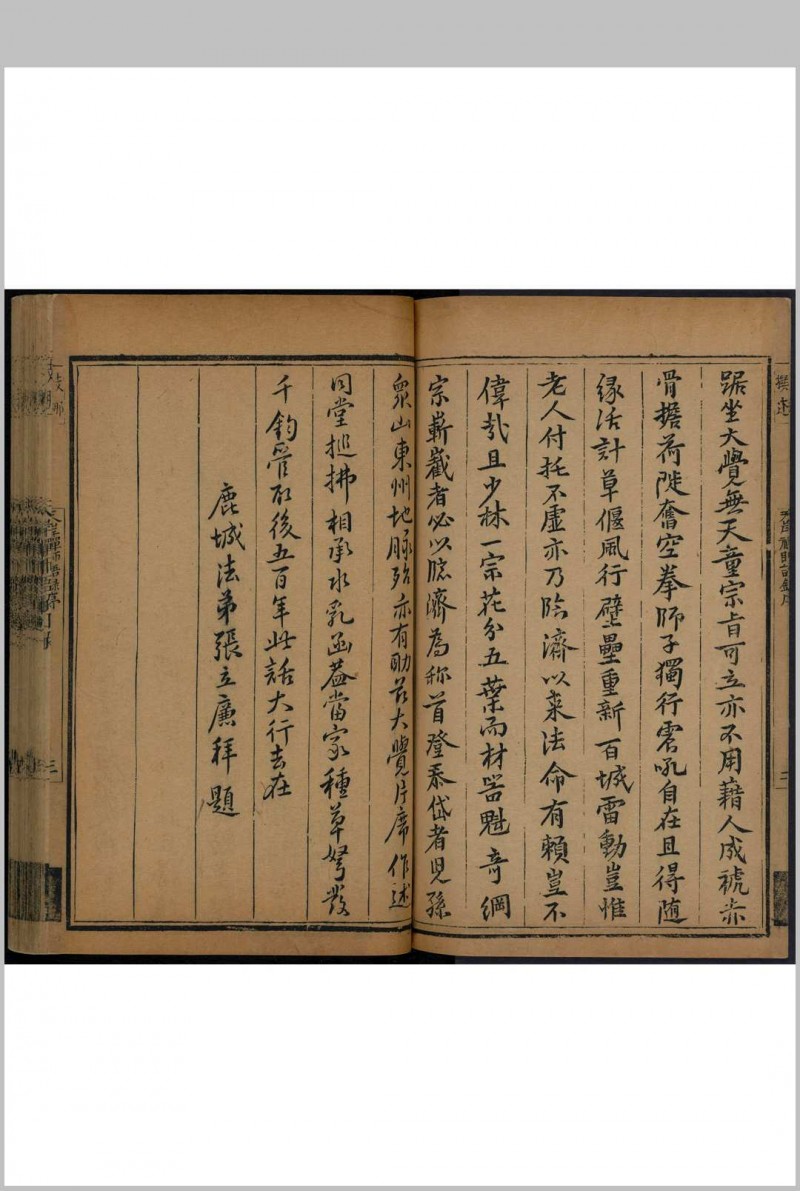 踞坐大覺無天童宗旨可立亦不用藉人成褫赤
骨擔荷陡奮空拳師子獨行雷吼自在且得随
緣活計草偃風行壁壘重新百城雷動豈惟
老人付托不虛亦乃臨濟以來法命有賴豈不
偉哉且少林一宗花分五葉而材器魁奇綱
宗嶄巀者必以臨濟為称首登泰岱者児孫
衆山東州地脉殆亦有助於大覺片席作述
同堂搥拂相承水乳函葢當家種草弩發
千鈞管取後五百年此話大行去在
鹿城法弟張立廉拜題
撰述
二
三